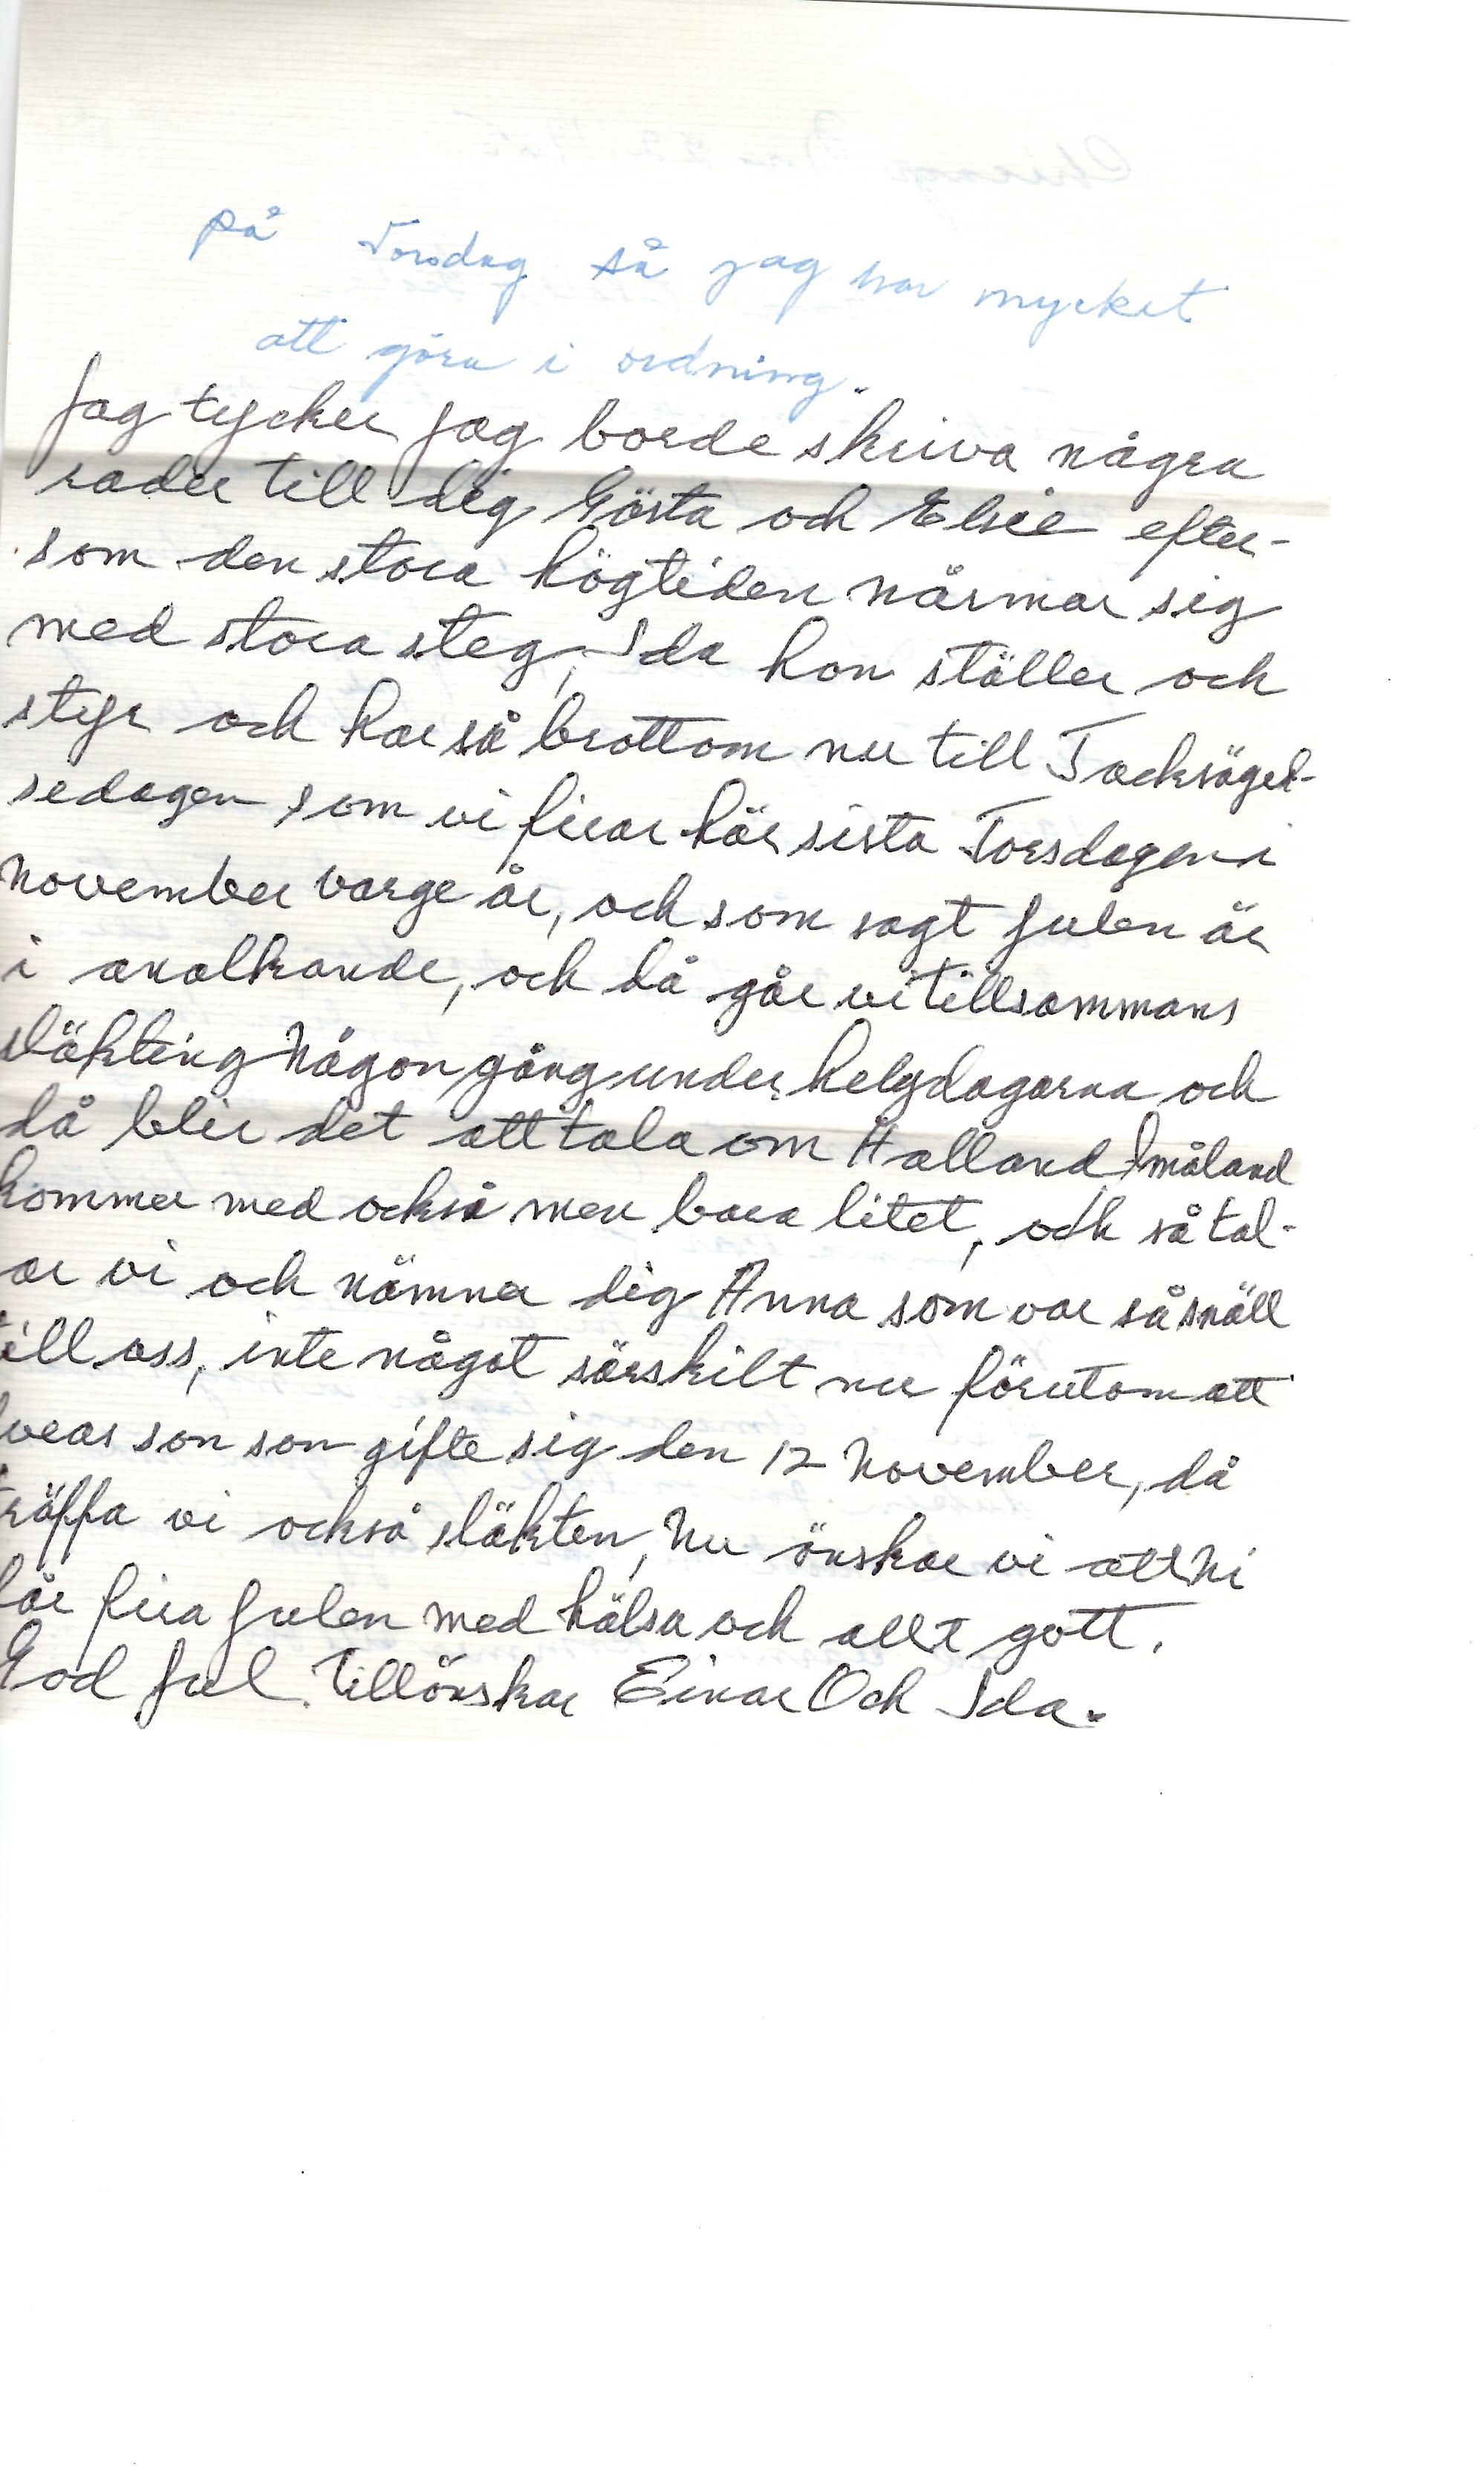 på Torsdag så jag har mycket
att göra i ordning.
Jag tycker jag borde skriva några
rader till dig Gösta och Elsie efter-
som den stora högtiden närmar sig
med stora steg, Ida hon ställer och
styr och har så brottom nu till Tacksägel-
sedagen som vi firar här sista Torsdagen i
November varge år, och som sagt Julen är
i analkande, och då går vi tillsammans
släkting någon gång under helgdagarna och
då blir det att tala om Halland Småland
kommer med också men bara litet, och så tal-
ar vi och nämner dig Anna som var så snäll
till oss, inte något särskilt nu förutom att
son som gifte sig den 12 November, då
träffa vi också släkten, Nu önskar vi att Ni
får fira Julen med hälsa och allt gott.
God Jul. Tillönskar Einar Och Ida.